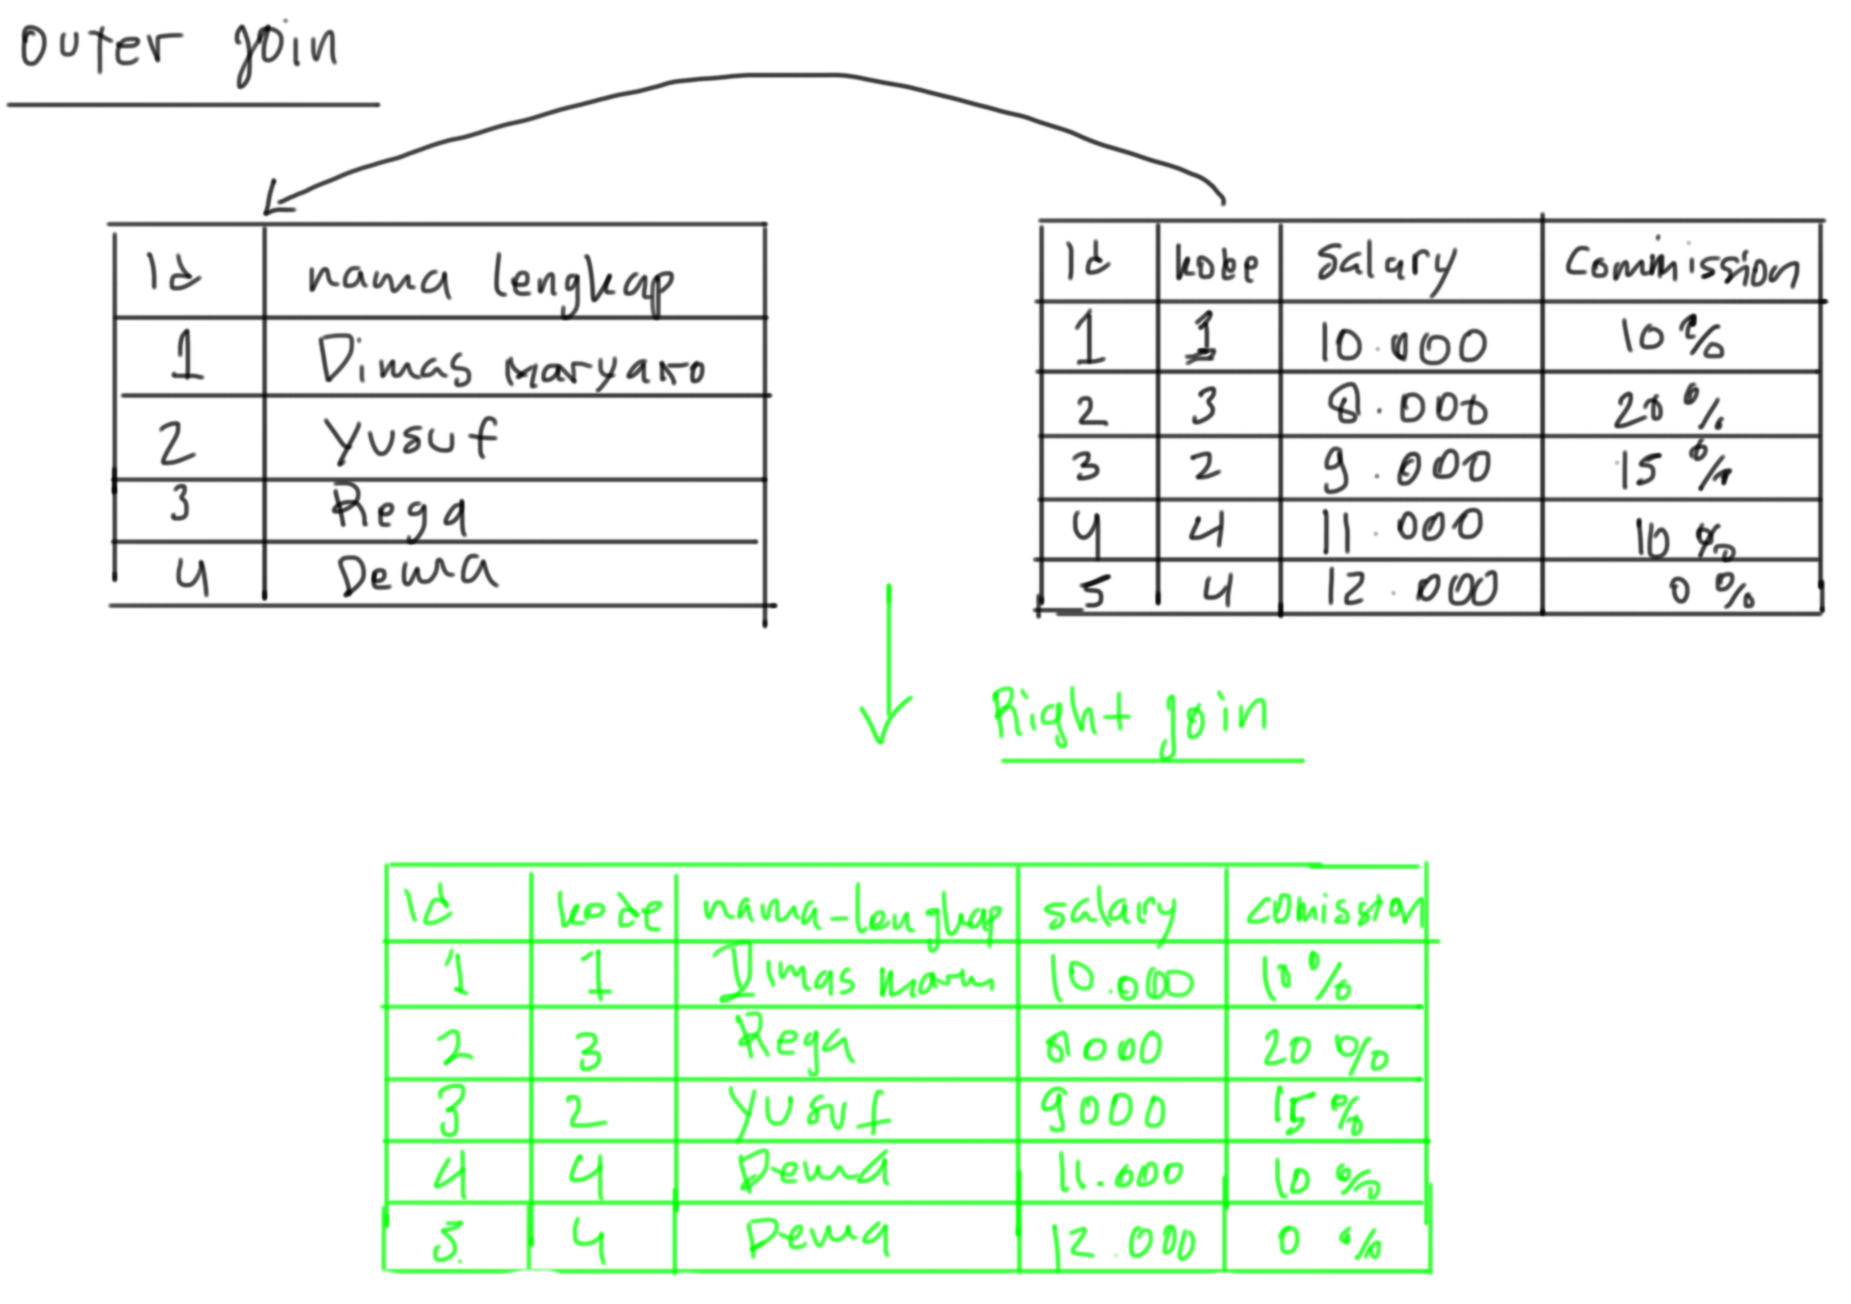 outer join
Id nama lengkap
1 Dimas maryano
2 Yusuf
3 Rega
4 Dewa
Id kode salary Commission
1 1 10.000 10%
2 3 8.000 20%
3 2 9.000 15%
4 4 11.000 10%
5 4 12.000 0%
Right join
id kode nama-lengkap salary comission
1 1 Dimas mary 10.000 10%
2 3 Rega 8000 20%
3 2 Yusuf 9000 15%
4 4 Dewa 11.000 10%
5. 4 Dewa 12.000 0%